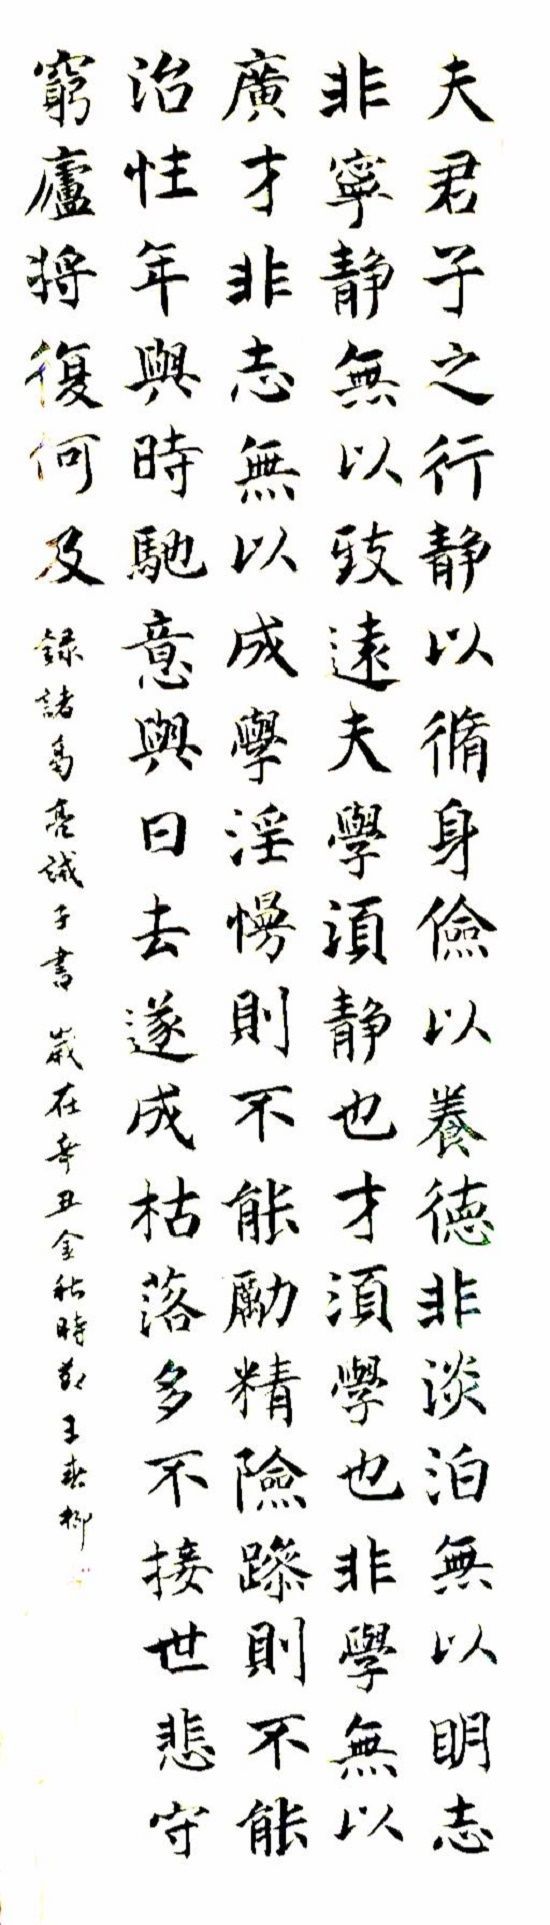 夫君子之行静以脩身儉以養德非淡泊無以明志
非寧静無以致遠夫學須静也才須學也非學無以
廣才非志無以成學淫慢則不能勵精險躁則不能
治性年與時馳意與日去遂成枯落多不接世悲守
窮廬將復何及
録諸葛亮誡子書 歲在辛丑金秋時節王春柳